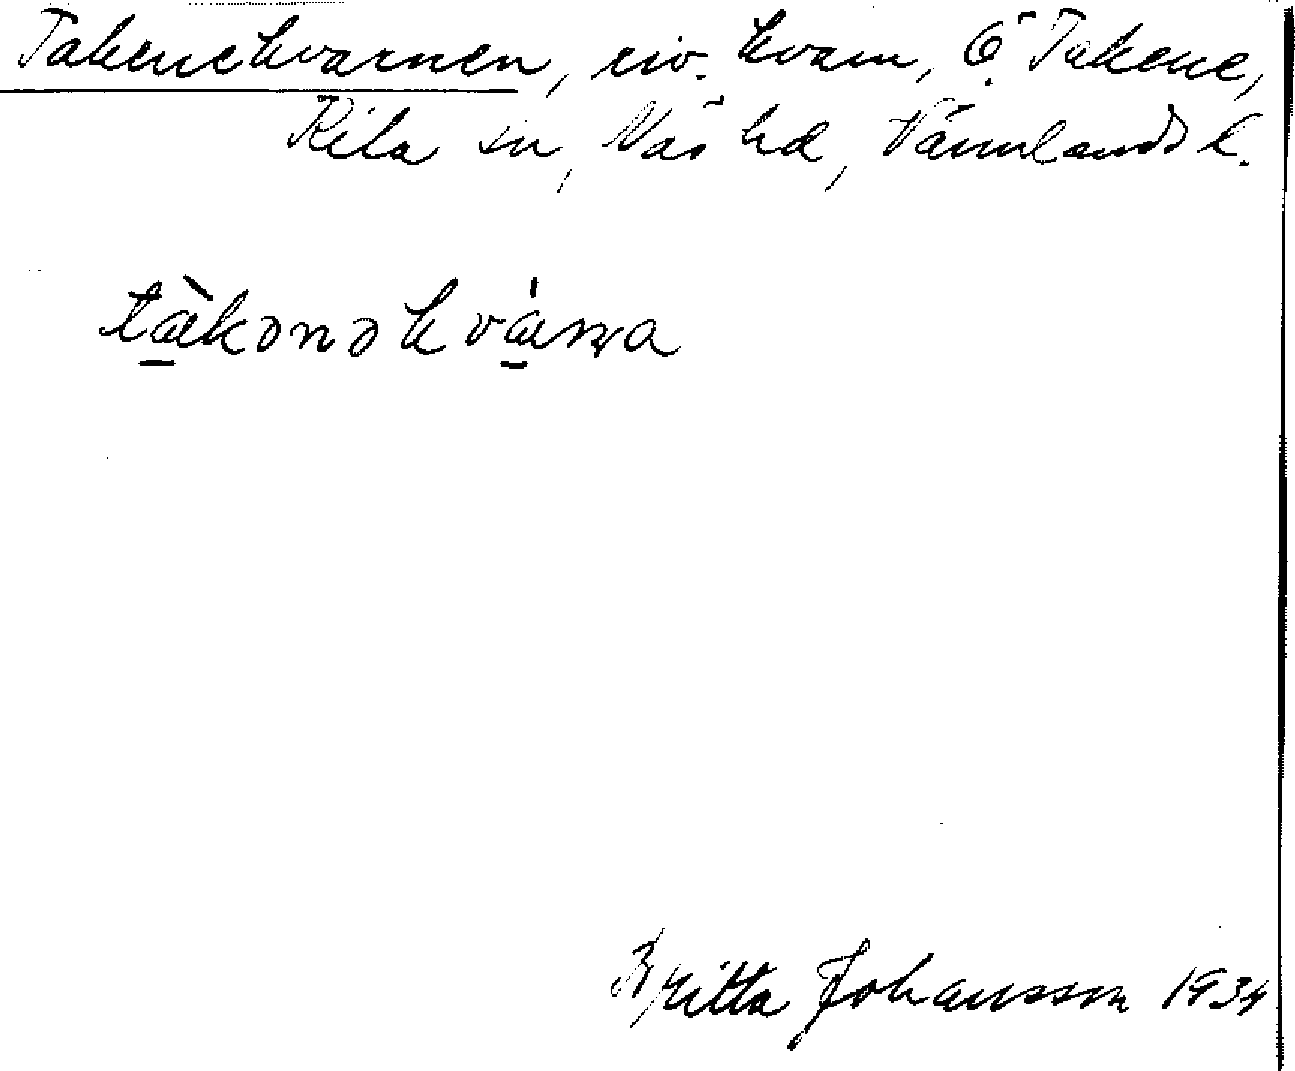 Takenekvarnen, riv. kvarn, Ö. Takene,
Kila sn, Näs hd, Värmlands l.
tæ̀kənəkvǽṇa
Britta Johansson 1934